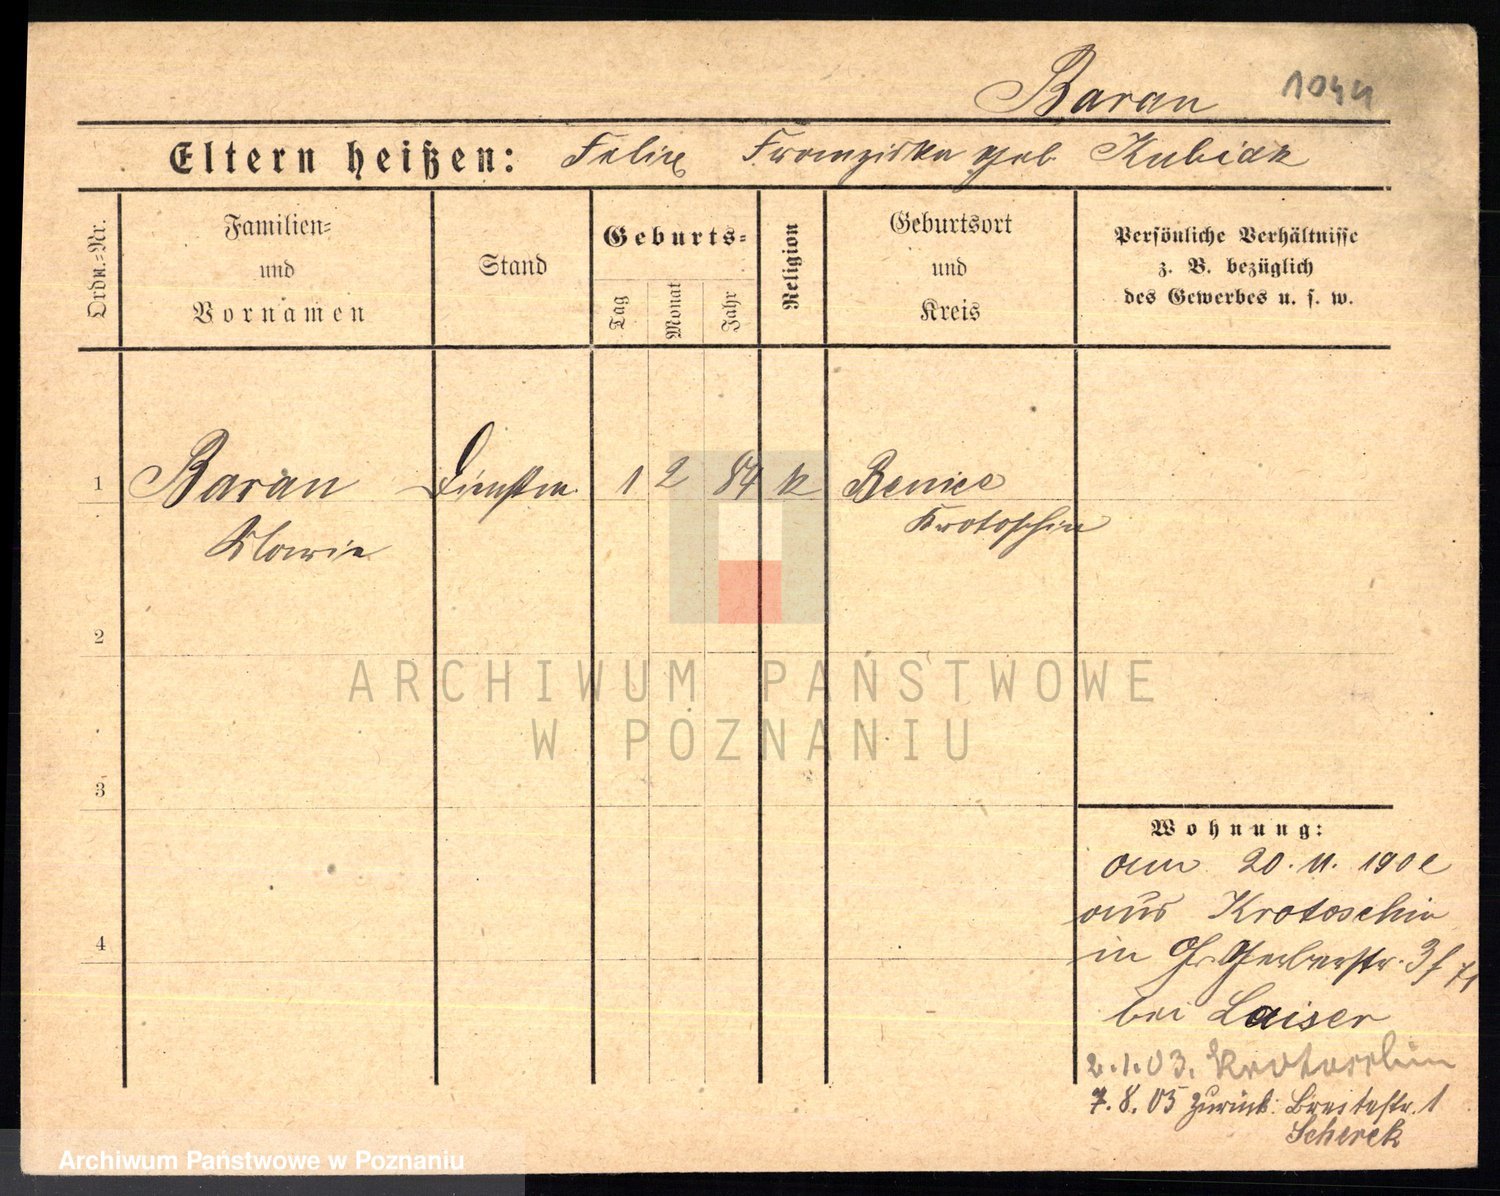 Baran 1044
Eltern heißen: Felix Franziska geb Kubiak
Ordn.=Nr.
Familien=
und
Vornamen
Stand
Geburts=
Tag
Monat
Jahr
Religion
Geburtsort
und
Kreis
Persönliche Verhältnisse
z. B. bezüglich
des Gewerbes u. s. w.
1 Baran 1 2 84 k Benice
Marie Krotoschin
2
ARCHIWUM PAŃSTWOWE
W POZNANIU
3
Wohnung:
am 20. 11. 190
aus Krotoschin
4
in Gr Gerberstr.
bei Laiser
2.1.03. Krotoschin
7.8.05 zurück: Breitestr. 1
Scherek
Archiwum Państwowe w Poznaniu